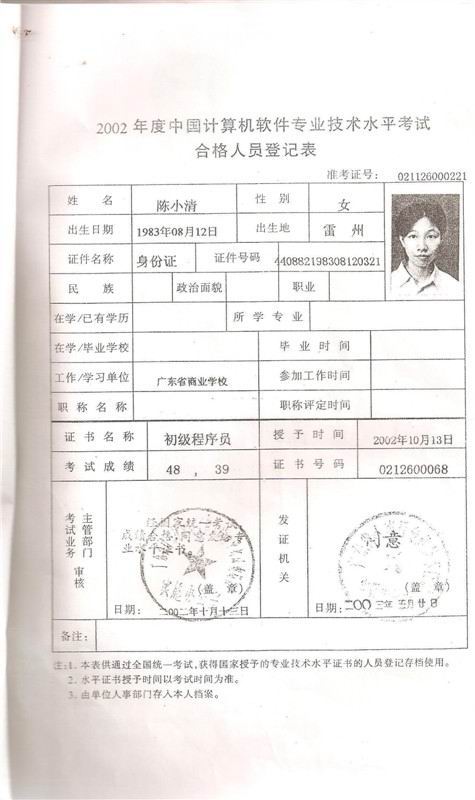 2002 年度中国计算机软件专业技术水平考试
合格人员登记表
准考证号: 021126000221
姓 名 陈小清 性 别 女
出生日期 1983年08月12日 出生地 雷 州
证件名称 身份证 证件号码 440882198308120321
民 族 政治面貌 职业
在学/已有学历 所 学 专 业
在学/毕业学校 毕 业 时 间
工作/学习单位 广东省商业学校 参加工作时间
职 称 名 称 职称评定时间
证 书 名 称 初级程序员 授 予 时 间 2002年10月13日
考 试 成 绩 48 , 39 证 书 号 码 0212600068
考试业务主管部门审核
经国家统一考
成绩合格,同意发给专
业水平证书。
(盖 章)
日期: 二00二年十月十三日
发证机关
同意
(盖 章)
日期: 二00三年 月廿日
备注:
注:1. 本表供通过全国统一考试,获得国家授予的专业技术水平证书的人员登记存档使用。
2. 水平证书授予时间以考试时间为准。
3. 由单位人事部门存入本人档案。